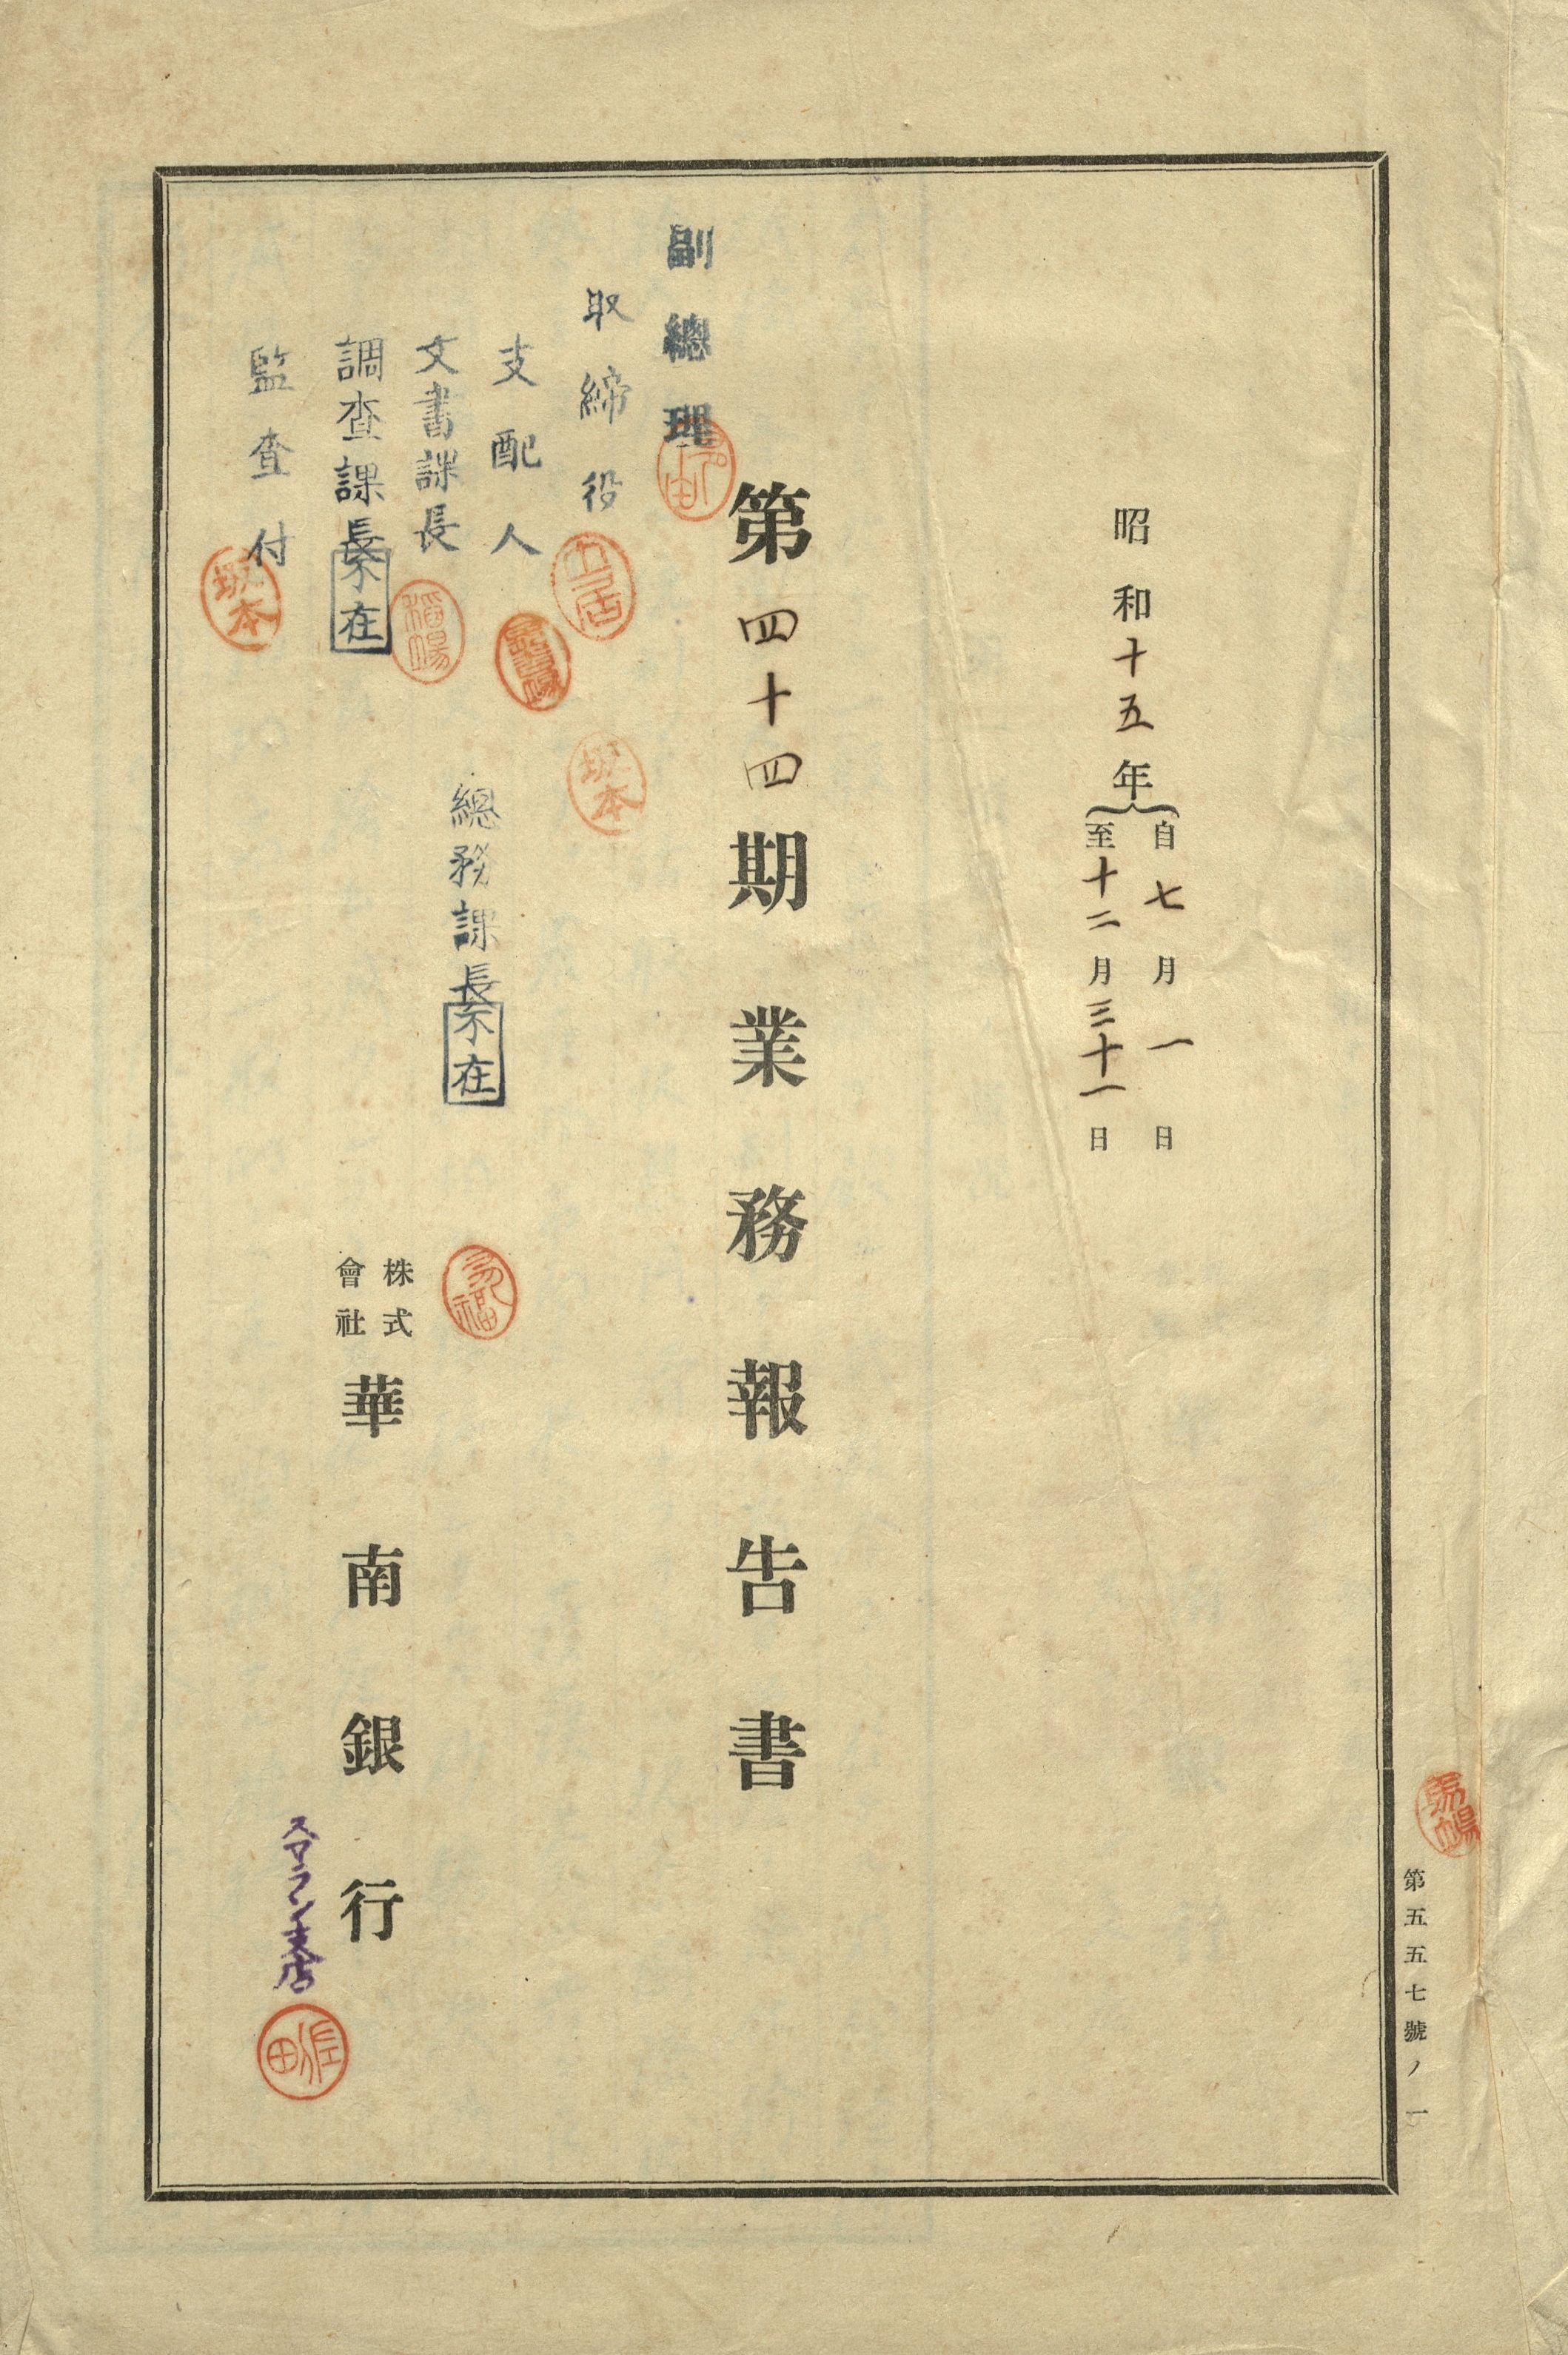 昭和十五年
自七月一日
至十二月三十一日
第四十四期業務報告書
副總理
取締役
支配人
文書課長
調查課長
不在
監查付
坂本
坂本
總務課長
不在
株式
會社
華南銀行
スマラン支店
第五五七號ノ一